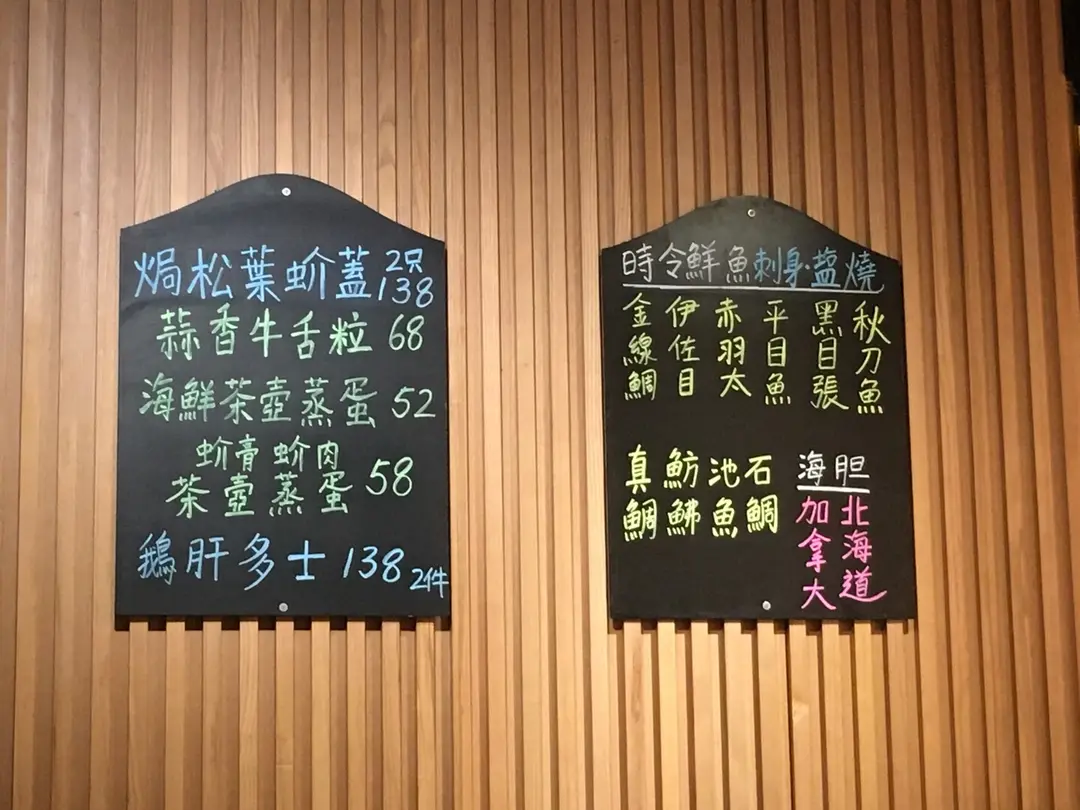 焗松葉蚧蓋 2只 138
蒜香牛舌粒 68
海鮮茶壺蒸蛋 52
蚧膏蚧肉
茶壺蒸蛋 58
鵝肝多士 138 2件
時令鮮魚刺身·盐燒
秋刀魚
黑目張
平目魚
赤羽太
伊佐目
金線鯛
石鯛
池魚
魴鮄
真鯛
海胆
北海道
加拿大